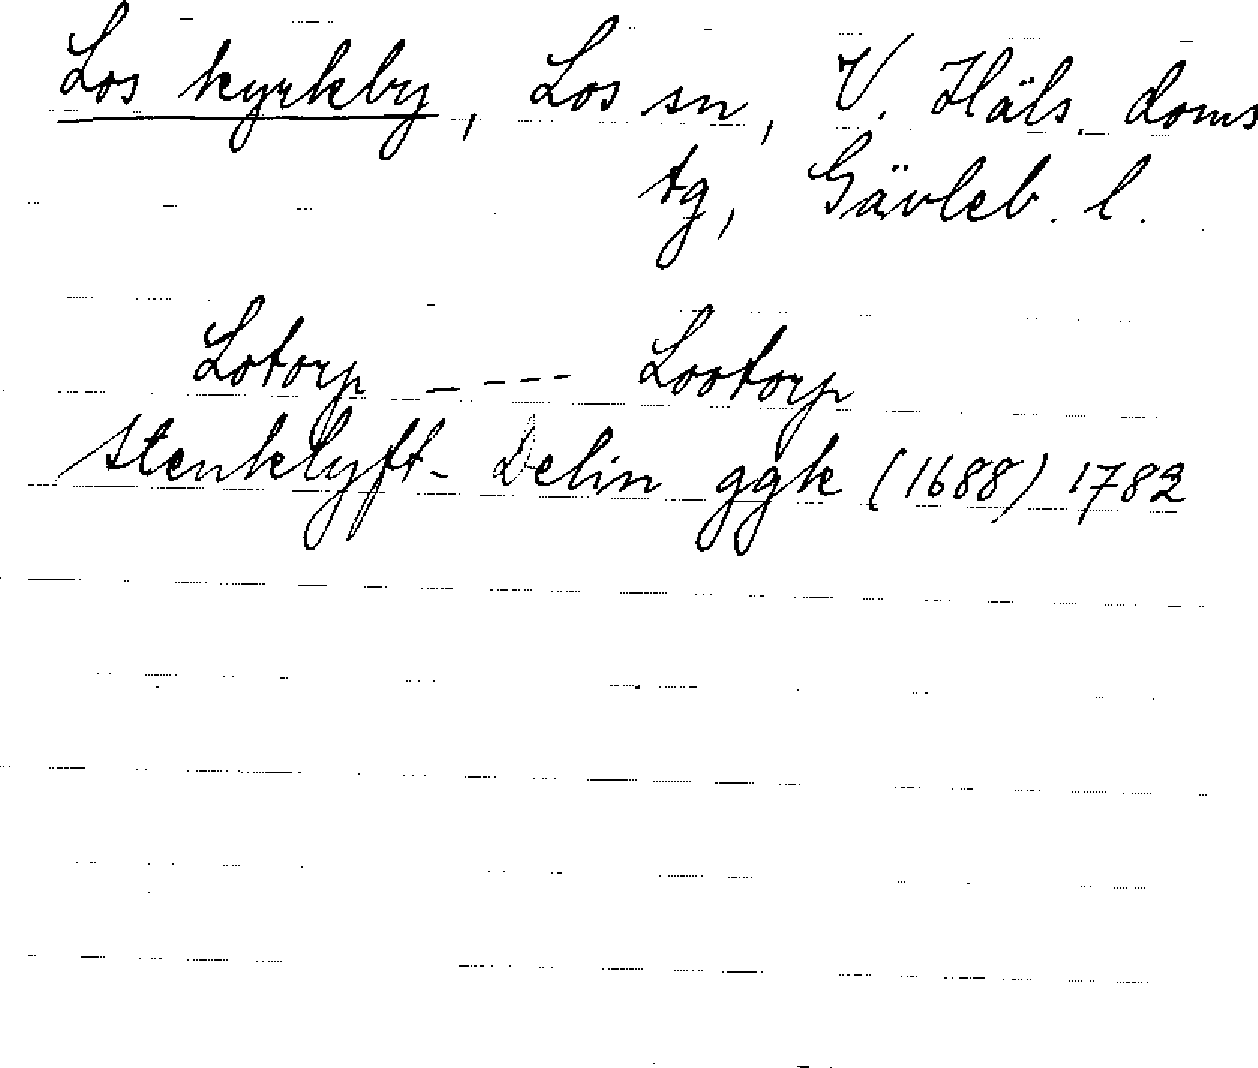 Los kyrkby, Los sn, V. Häls. doms
tg, Gävleb. l.
Lotorp - - - - Lootorp
Stenklyft- Delin ggk (1688) 1782